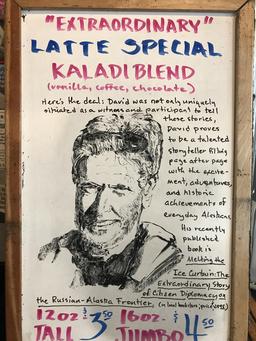 "EXTRAORDINARY"
LATTE SPECIAL
KALADI BLEND
(vanilla, coffee, chocolate)
Here's the deal: David was not only uniquely
situated as a witness and participant to tell
these stories,
David proves
to be a talented
storyteller filling
page after page
with the excite-
ment, adventures,
and historic
achievements of
everyday Alaskans.
His recently
published
book is
Melting the
Ice Curtain: The
Extraordinary Story
of Citizen Diplomacy on
the Russian-Alaska Frontier. (in local bookstores;
12oz $3.50 16oz $4.50
TALL JUMBO